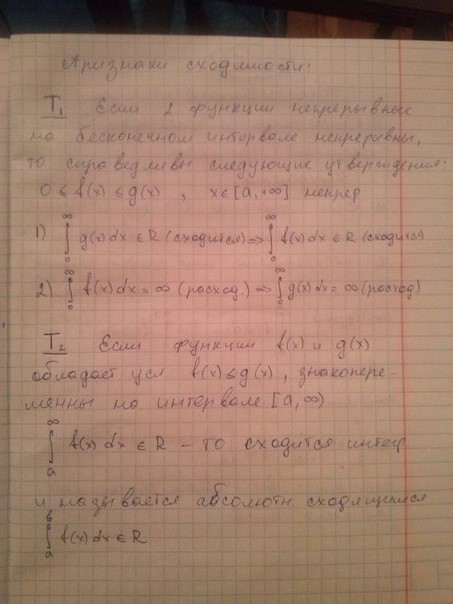 Признаки сходимости:
T₁ Если 2 функции непрерывные
на бесконечном интервале непрерывны,
то справедливы следующие утверждения:
0 ≤ f(x) ≤ g(x) , x∈[a,+∞] непрер
1) ∫₀^∞ g(x)dx ∈ R (сходится) ⇒ ∫₀^∞ f(x)dx ∈ R (сходится)
2) ∫₀^∞ f(x)dx = ∞ (расход.) ⇒ ∫₀^∞ g(x)dx = ∞ (расход)
T₂ Если функции f(x) и g(x)
обладает усл f(x) ≤ g(x), знакопере-
менны на интервале [a,∞)
∫ₐ^∞ f(x)dx ∈ R – то сходится интегр
и называется абсолютн. сходящимся
∫ₐ^в f(x)dx ∈ R